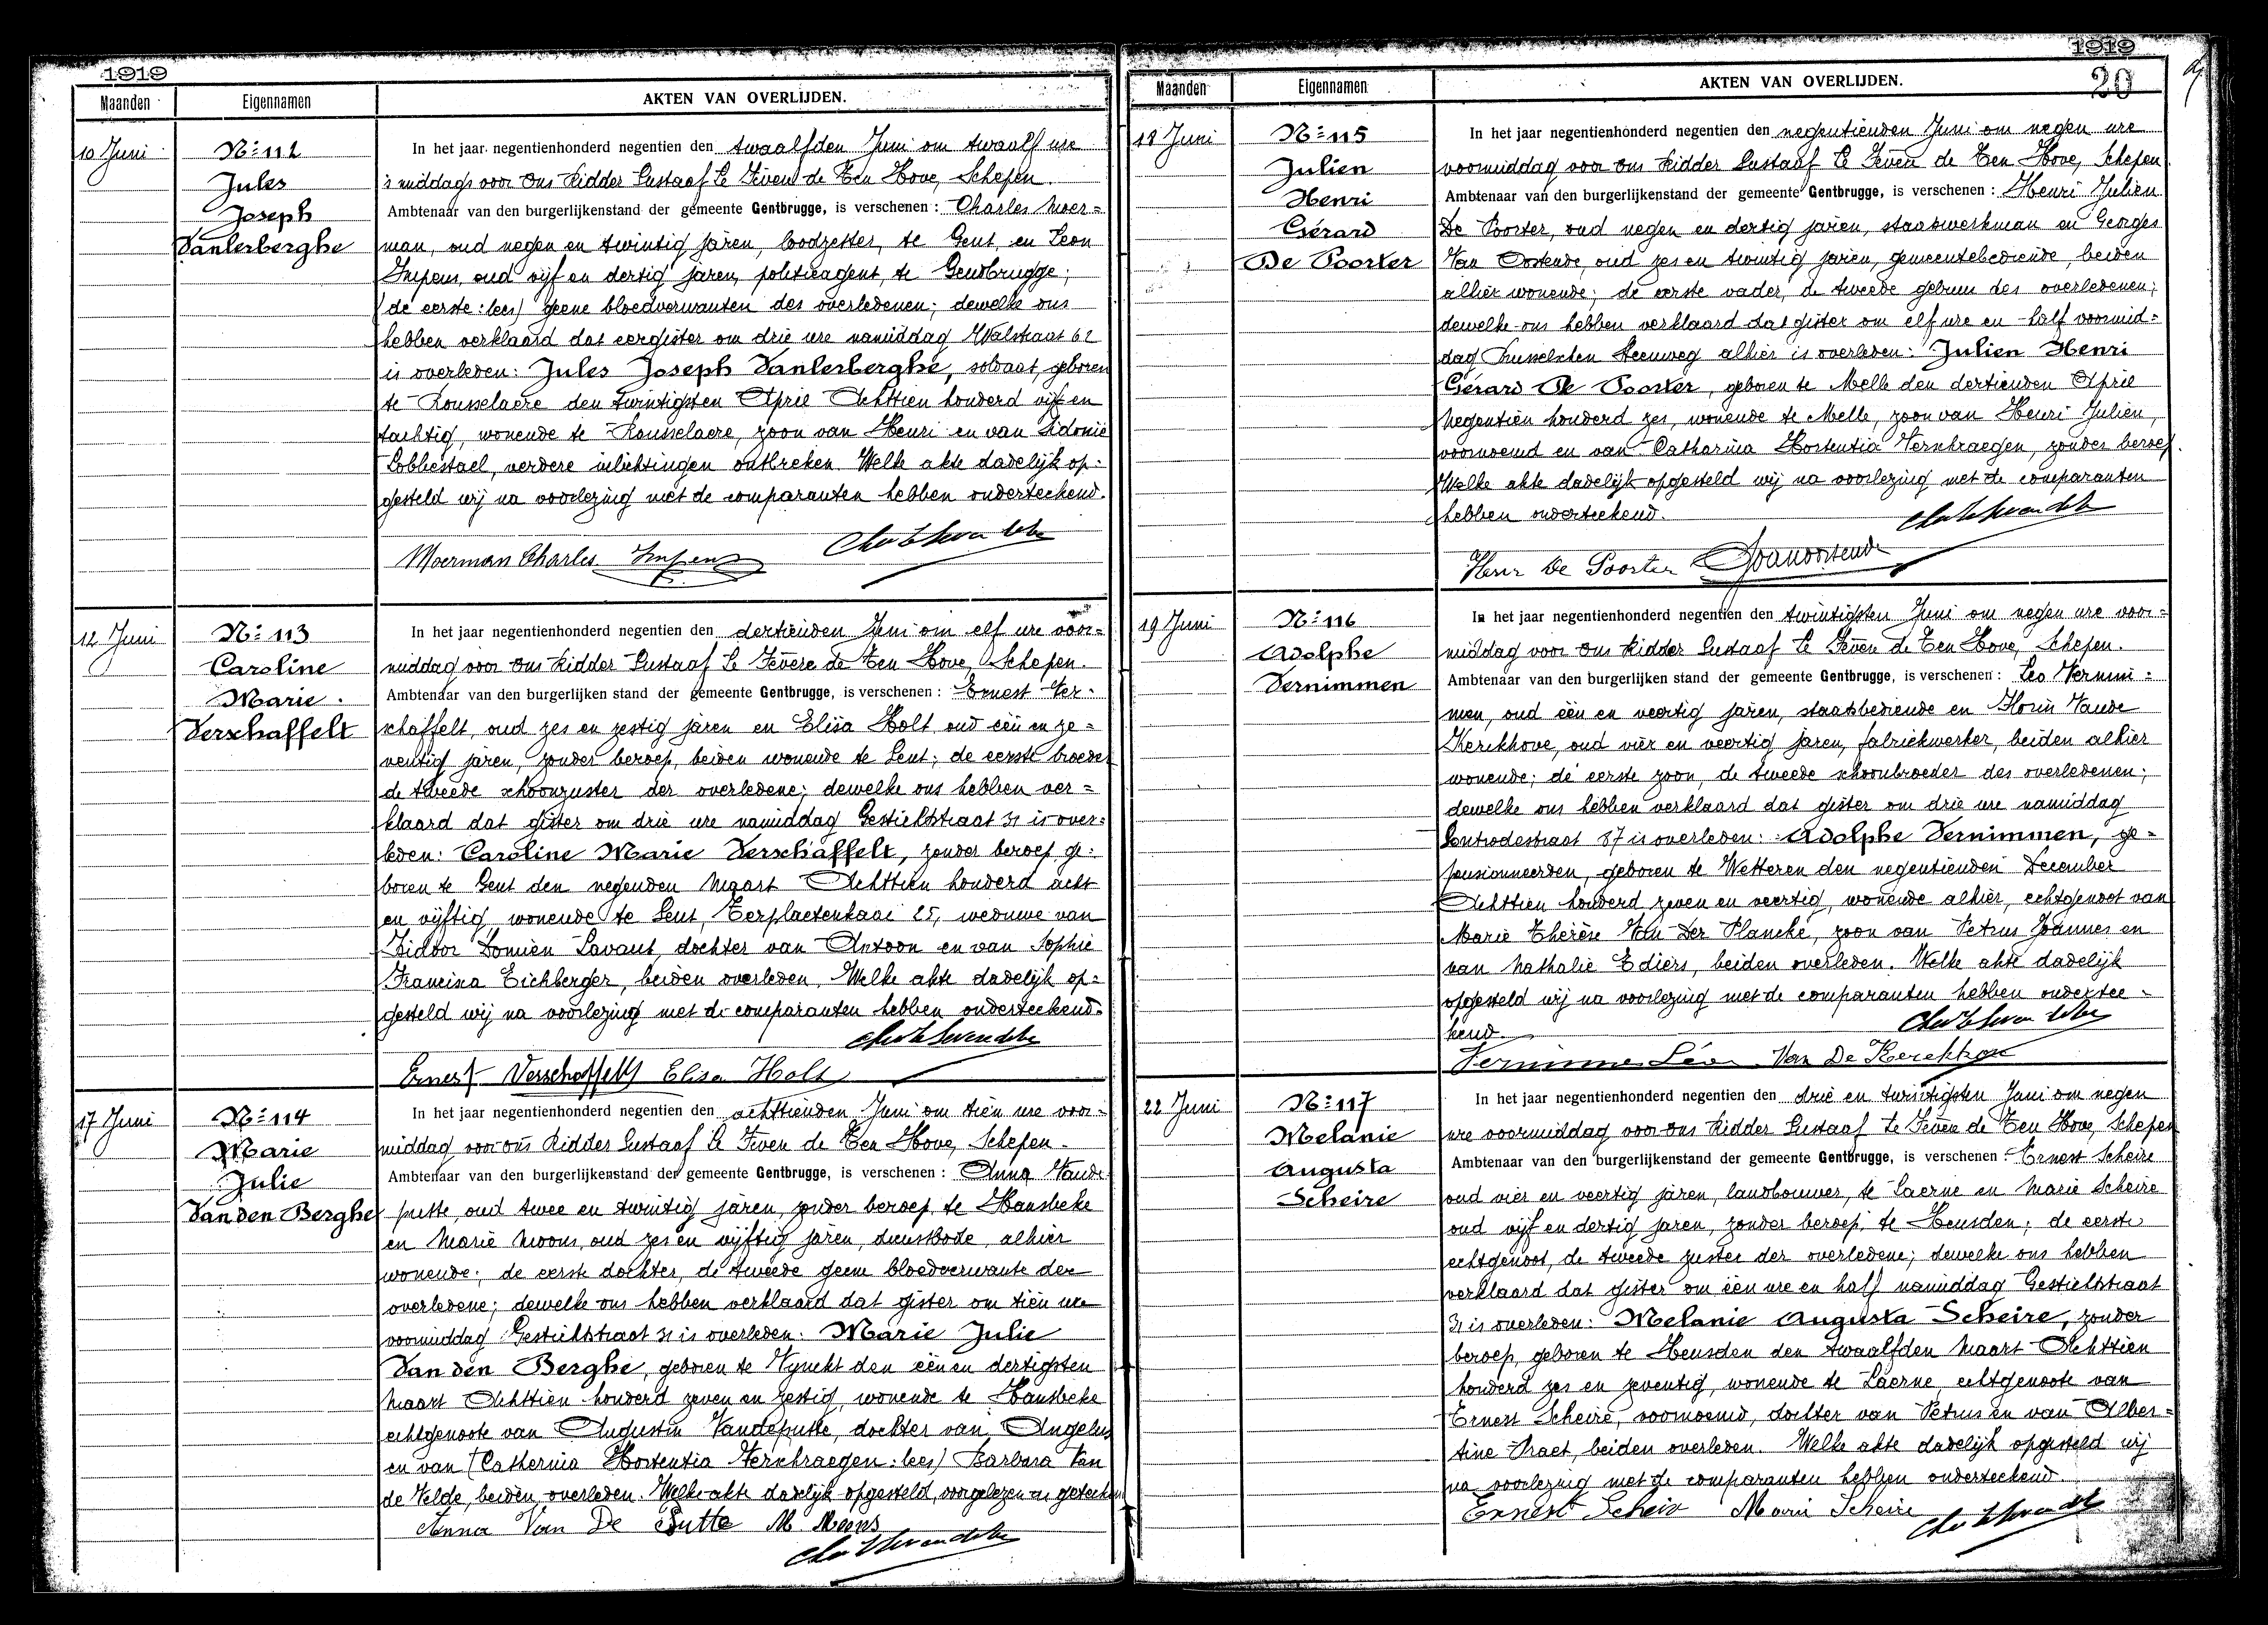 1919
Maanden Eigennamen AKTEN VAN OVERLIJDEN.
10 Juni
Nº 112
Jules
Joseph
Vanlerberghe
In het jaar negentienhonderd negentien den twaalfden Juni om twaalf ure
's middags voor Ons Ridder Gustaaf Le Fevere de Ten Hove, Schepen.
Ambtenaar van den burgerlijkenstand der gemeente Gentbrugge, is verschenen : Charles Moer=
man, oud negen en twintig jaren, loodzetter, te Gent, en Leon
Impens, oud vijf en dertig jaren, politieagent, te Gendbrugge;
(de eerste: lees) geene bloedverwanten des overledenen; dewelke ons
hebben verklaard dat eergister om drie ure namiddag Walstraat 62
is overleden: Jules Joseph Vanlerberghe, soldaat, geboren
te Rousselaere den twintigsten April Achttien honderd vijf en
tachtig, wonende te Rousselaere, zoon van Henri en van Sidonie
Lobbestael, verdere inlichtingen ontbreken. Welke akte dadelijk op=
gesteld wij na voorlezing met de comparanten hebben onderteekend.
Moerman Charles Impens
12 Juni
Nº 113
Caroline
Marie
Verschaffelt
In het jaar negentienhonderd negentien den dertienden Juni om elf ure voor=
middag voor Ons Ridder Gustaaf Le Fevere de Ten Hove, Schepen.
Ambtenaar van den burgerlijken stand der gemeente Gentbrugge, is verschenen : Ernest Ver=
schaffelt, oud zes en zestig jaren en Elisa Holt, oud een en ze=
ventig jaren, zonder beroep, beiden wonende te Gent; de eerste broeder
de tweede schoonzuster der overledene; dewelke ons hebben ver=
klaard dat gister om drie ure namiddag Gestichtstraat 31 is over=
leden: Caroline Marie Verschaffelt, zonder beroep, ge=
boren te Gent den negenden Maart Achttien honderd acht
en vijftig, wonende te Gent, Terplaetenkaai 25, weduwe van
Isidoor Domien Savaut, dochter van Antoon en van Sophie
Francisca Eichberger, beiden overleden. Welke akte dadelijk op=
gesteld wij na voorlezing met de comparanten hebben onderteekend.
Ernest Verschaffelt Elisa Holt
17 Juni
Nº 114
Marie
Julie
Van den Berghe
In het jaar negentienhonderd negentien den achttienden Juni om tien ure voor=
middag voor ons Ridder Gustaaf Le Fevere de Ten Hove, Schepen.
Ambtenaar van den burgerlijkenstand der gemeente Gentbrugge, is verschenen : Anna Vande
putte, oud twee en twintig jaren, zonder beroep, te Hansbeke
en Marie Moons, oud zes en vijftig jaren, dienstbode, alhier
wonende; de eerste dochter, de tweede geene bloedverwante der
overledene; dewelke ons hebben verklaard dat gister om tien ure
voormiddag Gestichtstraat 31 is overleden: Marie Julie
Van den Berghe, geboren te Vynckt den een en dertigsten
Maart Achttien honderd zeven en zestig, wonende te Hansbeke
echtgenoote van Augustin Vandeputte, dochter van Angelus
en van (Catherina Hortentia Verschraegen: lees) Barbara Van
de Velde, beiden overleden. Welke akte dadelijk opgesteld, voorgelezen en geteekend
Anna Van De Putte M Moons
1919
20
Maanden Eigennamen AKTEN VAN OVERLIJDEN.
18 Juni
Nº 115
Julien
Henri
Gérard
De Poorter
In het jaar negentienhonderd negentien den negentienden Juni om negen ure
voormiddag voor Ons Ridder Gustaaf Le Fevere de Ten Hove, Schepen
Ambtenaar van den burgerlijkenstand der gemeente Gentbrugge, is verschenen : Henri Julien
De Poorter, oud negen en dertig jaren, staatswerkman en Georges
Van Oostende, oud zes en twintig jaren, gemeentebediende, beiden
alhier wonende; de eerste vader, de tweede gebuur des overledenen;
dewelke ons hebben verklaard dat gister om elf ure en half voormid=
dag Brusselschen steenweg alhier is overleden: Julien Henri
Gérard De Poorter, geboren te Melle den dertienden April
Negentien honderd zes, wonende te Melle, zoon van Henri Julien,
voornoemd en van Catharina Hortentia Verschraegen, zonder beroep.
Welke akte dadelijk opgesteld wij na voorlezing met de comparanten
hebben onderteekend.
Henr De Poorter GVanoostende
19 Juni
Nº 116
Adolphe
Vernimmen
In het jaar negentienhonderd negentien den twintigsten Juni om negen ure voor=
middag voor Ons Ridder Gustaaf Le Fevere de Ten Hove, Schepen.
Ambtenaar van den burgerlijken stand der gemeente Gentbrugge, is verschenen : Leo Vernim=
men, oud een en veertig jaren, staatsbediende en Florin Vande
Kerckhove, oud vier en veertig jaren, fabriekwerker, beiden alhier
wonende; de eerste zoon, de tweede schoonbroeder des overledenen;
dewelke ons hebben verklaard dat gister om drie ure namiddag
Gontrodestraat 87 is overleden: Adolphe Vernimmen, ge=
pensionneerden, geboren te Wetteren den negentienden December
Achttien honderd zeven en veertig, wonende alhier, echtgenoot van
Marie Thérèse Van Der Plancke, zoon van Petrus Joannes en
van Nathalie Ediers, beiden overleden. Welke akte dadelijk
opgesteld wij na voorlezing met de comparanten hebben onderteе=
kend.
Vernimmen Léon Van De Kerckhove
22 Juni
Nº 117
Melanie
Augusta
Scheire
In het jaar negentienhonderd negentien den drie en twintigsten Juni om negen
ure voormiddag voor Ons Ridder Gustaaf Le Fevere de Ten Hove, Schepen
Ambtenaar van den burgerlijkenstand der gemeente Gentbrugge, is verschenen : Ernest Scheire
oud vier en veertig jaren, landbouwer, te Laerne en Marie Scheire
oud vijf en dertig jaren, zonder beroep, te Heusden; de eerste
echtgenoot, de tweede zuster der overledene; dewelke ons hebben
verklaard dat gister om een ure en half namiddag Gestichtstraat
31 is overleden: Melanie Augusta Scheire, zonder
beroep, geboren te Heusden den twaalfden Maart Achttien
honderd zes en zeventig, wonende te Laerne, echtgenoote van
Ernest Scheire, voornoemd, dochter van Petrus en van Alber=
tine Praet, beiden overleden. Welke akte dadelijk opgesteld wij
na voorlezing met de comparanten hebben onderteekend.
Ernest Scheir Marie Scheire